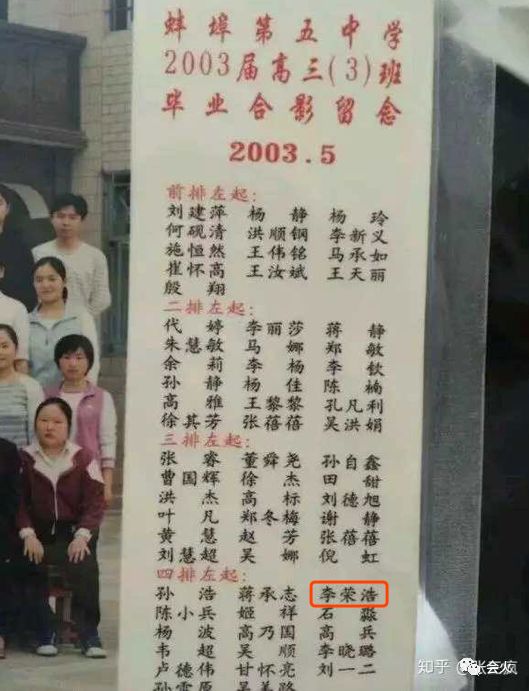 蚌埠第五中学
2003届高三(3)班
毕业合影留念
2003.5
前排左起:
刘建萍 杨静 杨玲
何砚清 洪顺钢 李新义
施恒然 王伟铭 马承如
崔怀高 王汝斌 王天丽
殷翔
二排左起:
代婷 李丽莎 蒋静
朱慧敏 马娜 郑敏
余莉 李杨 李钦
孙静 杨佳 陈楠
高雅 王黎黎 孔凡利
徐其芳 张蓓蓓 吴洪娟
三排左起:
张睿 董舜尧 孙自鑫
曹国辉 徐杰 田甜
洪杰 高标 刘德旭
叶凡 郑冬梅 谢静
黄慧 赵芳 张蓓蓓
刘慧超 吴娜 倪虹
四排左起:
孙浩 蒋承志 李荣浩
陈小兵 姬祥 石淼
杨波 高乃国 高兵
韦超 吴顺 李晓璐
卢德伟 甘怀亮 刘一二
知乎